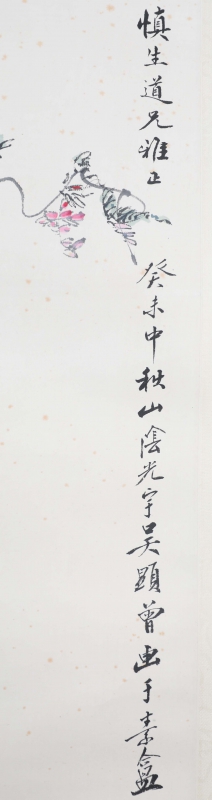 慎生道兄雅正
癸未中秋山陰光宇吴顯曾画于素盦